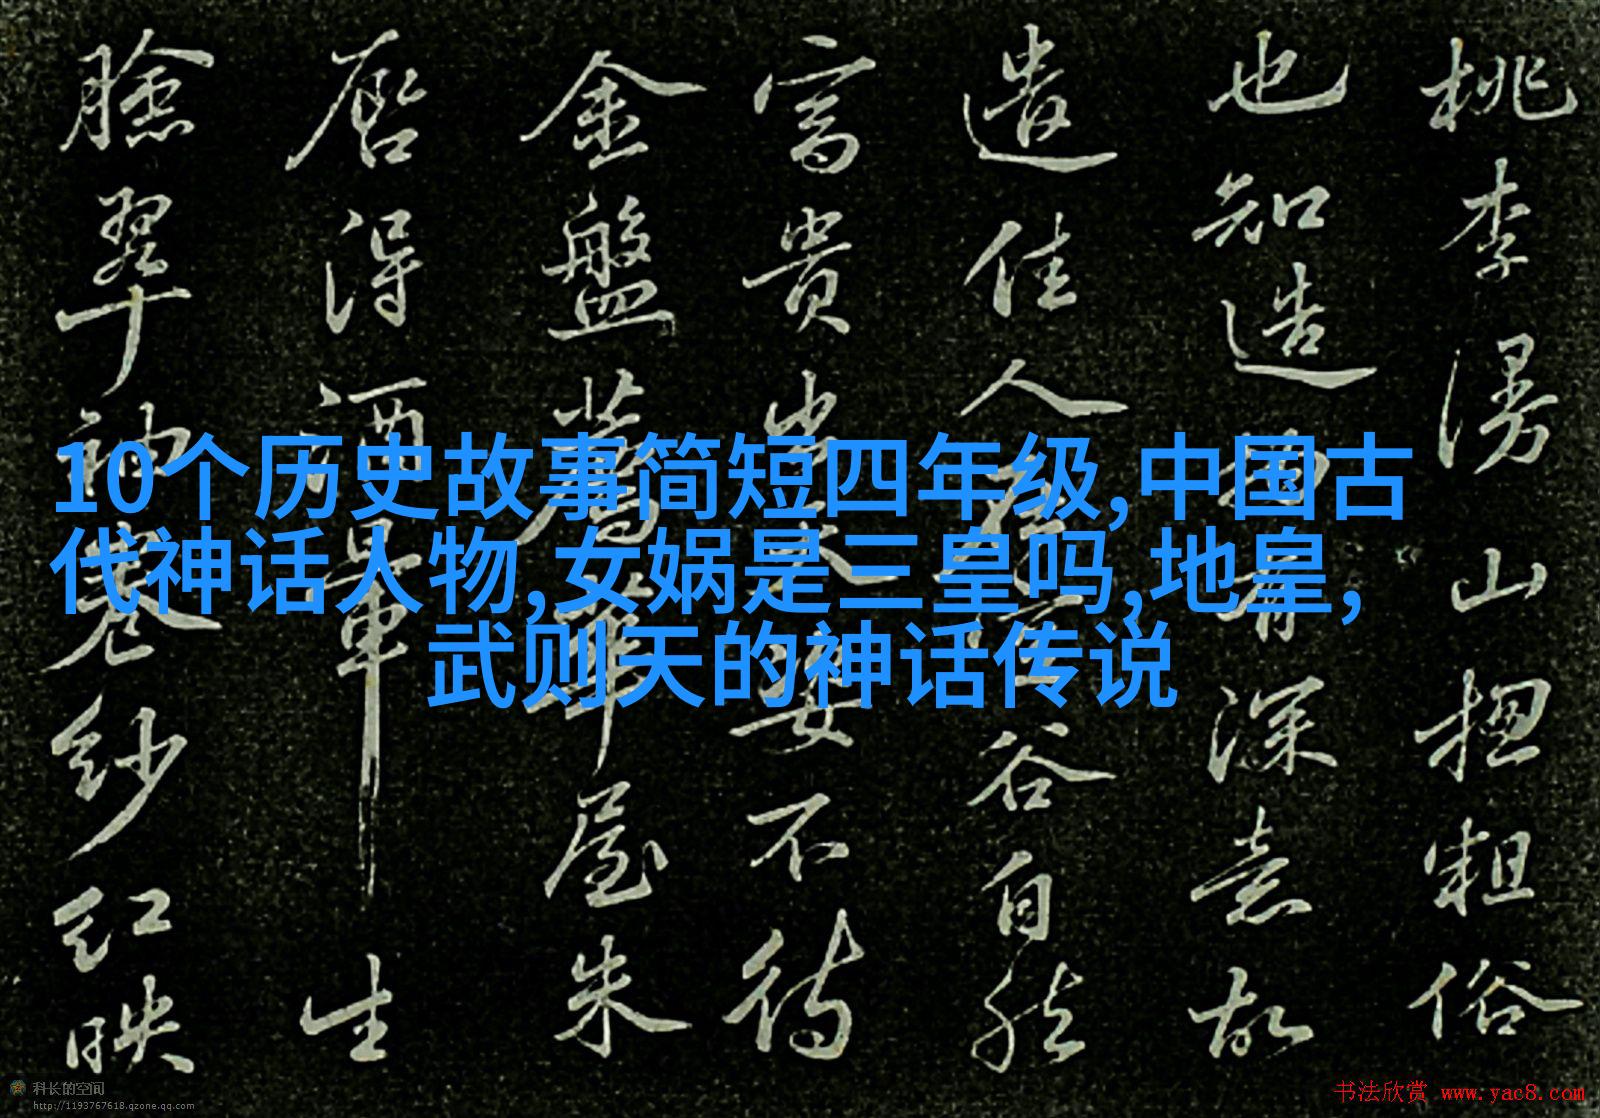 10个历史故事简短四年级,中国古
代神话人物,女娲是三皇吗,地皇,
武则天的神话传说
桃李漫山揔粗俗
也知造物有深意故
遣佳人在空谷自然
富貴出天姿不待
金盤薦華屋朱
唇得酒暈生
臉翠袖卷紗紅映
科长的空间
http://1193767618.qzone.qq.com
书法欣赏 www.yac8.com